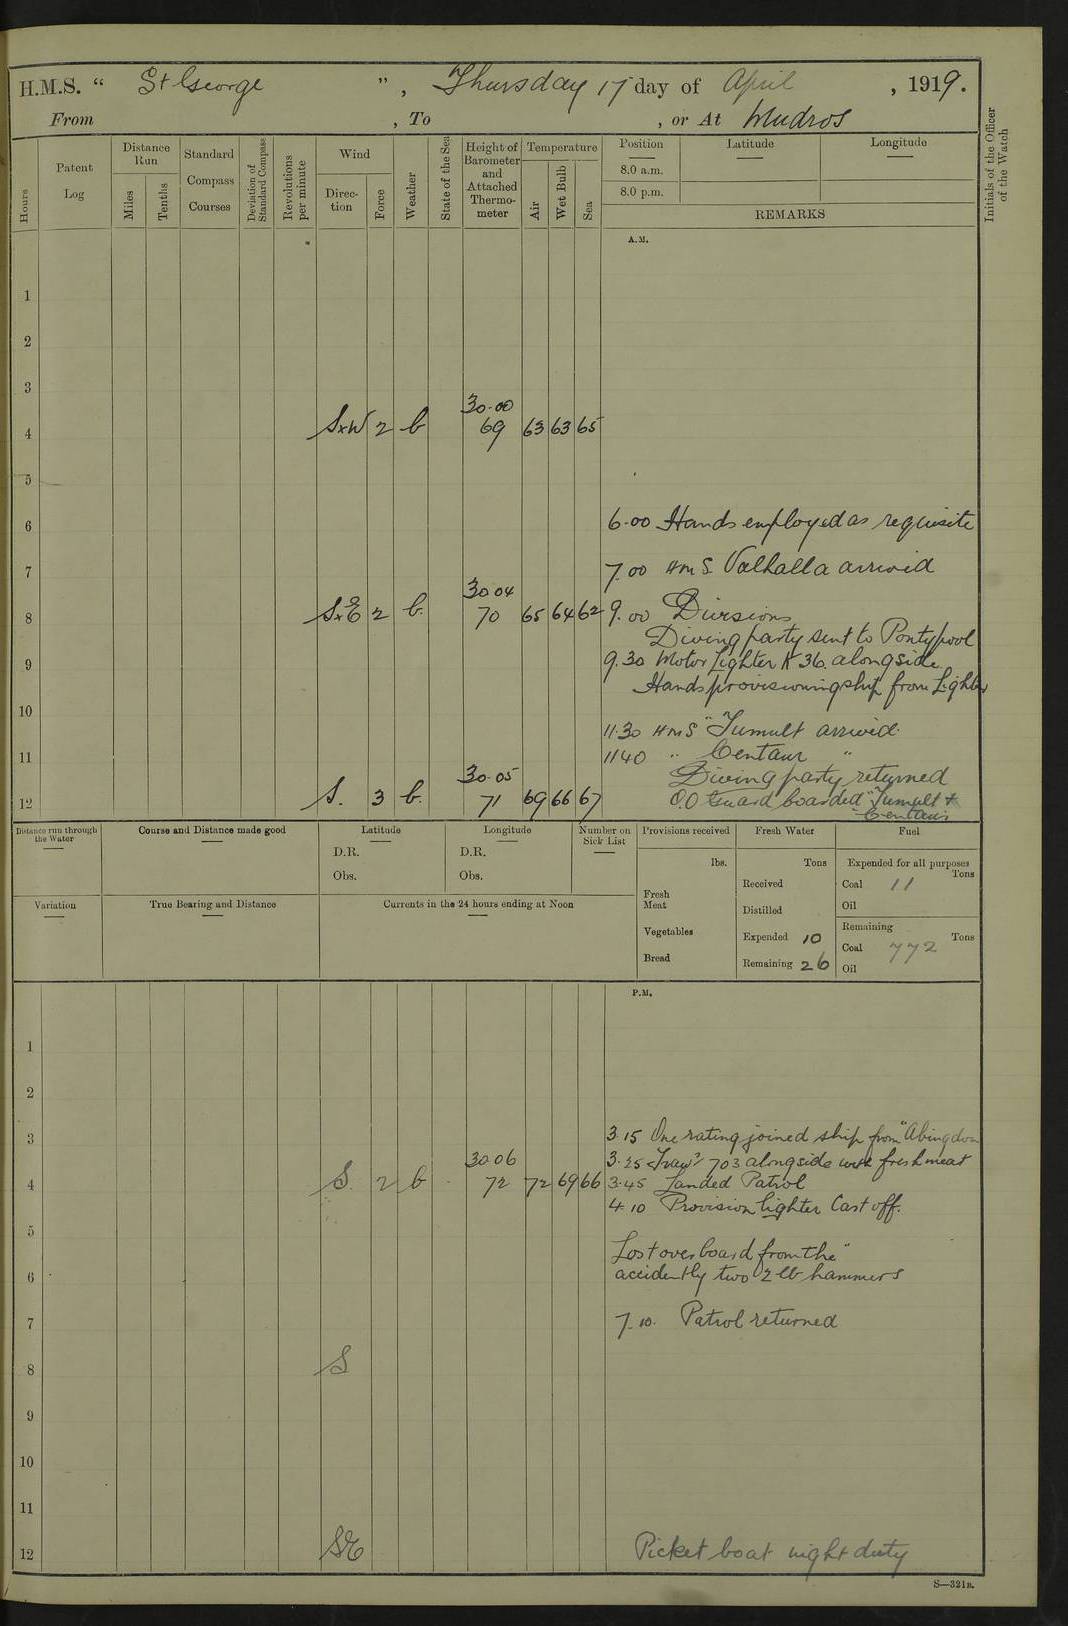 H.M.S. “ St George ”, Thursday 17 day of April , 1919.
From , To , or At Mudros
Hours
Patent Log
Distance Run
Miles
Tenths
Standard Compass Courses
Deviation of Standard Compass
Revolutions per minute
Wind
Direction
Force
Weather
State of the Sea
Height of Barometer and Attached Thermometer
Temperature
Air
Wet Bulb
Sea
Position
8.0 a.m.
8.0 p.m.
Latitude
Longitude
REMARKS
Initials of the Officer of the Watch
A.M.
1
2
3
30.00
4 SxW 2 b 69 63 63 65
5
6 6.00 Hands employed as requisite
7 7.00 HMS Valhalla arrived
30 04
8 SxE 2 b. 70 65 64 62 9.00 Divisions
Diving party sent to Pontypool
9 9.30 Motor Lighter K 36. alongside
Hands provisioning ship from Lighter
10
11.30 HMS "Tumult arrived.
11 1140 " Centaur "
30.05 Diving party returned
12 S. 3 b. 71 69 66 67 O.O Guard boarded "Tumult +
Centaur
Distance run through the Water
Course and Distance made good
Latitude
D.R.
Obs.
Longitude
D.R.
Obs.
Number on Sick List
Provisions received
lbs.
Fresh Meat
Vegetables
Bread
Fresh Water
Tons
Received
Distilled
Expended 10
Remaining 26
Fuel
Expended for all purposes
Tons
Coal 11
Oil
Remaining
Tons
Coal 772
Oil
Variation
True Bearing and Distance
Currents in the 24 hours ending at Noon
P.M.
1
2
3 3.15 One rating joined ship from "Abingdon
30 06 3.25 703 alongside with fresh meat
4 S. 2 b 72 72 69 66 3.45 Landed Patrol
4.10 Provision lighter Cast off.
5
Lost overboard from the "
6 accidently two 2 lb hammers
7 7.10. Patrol returned
8 S
9
10
11
12 SE Picket boat night duty
S—321B.